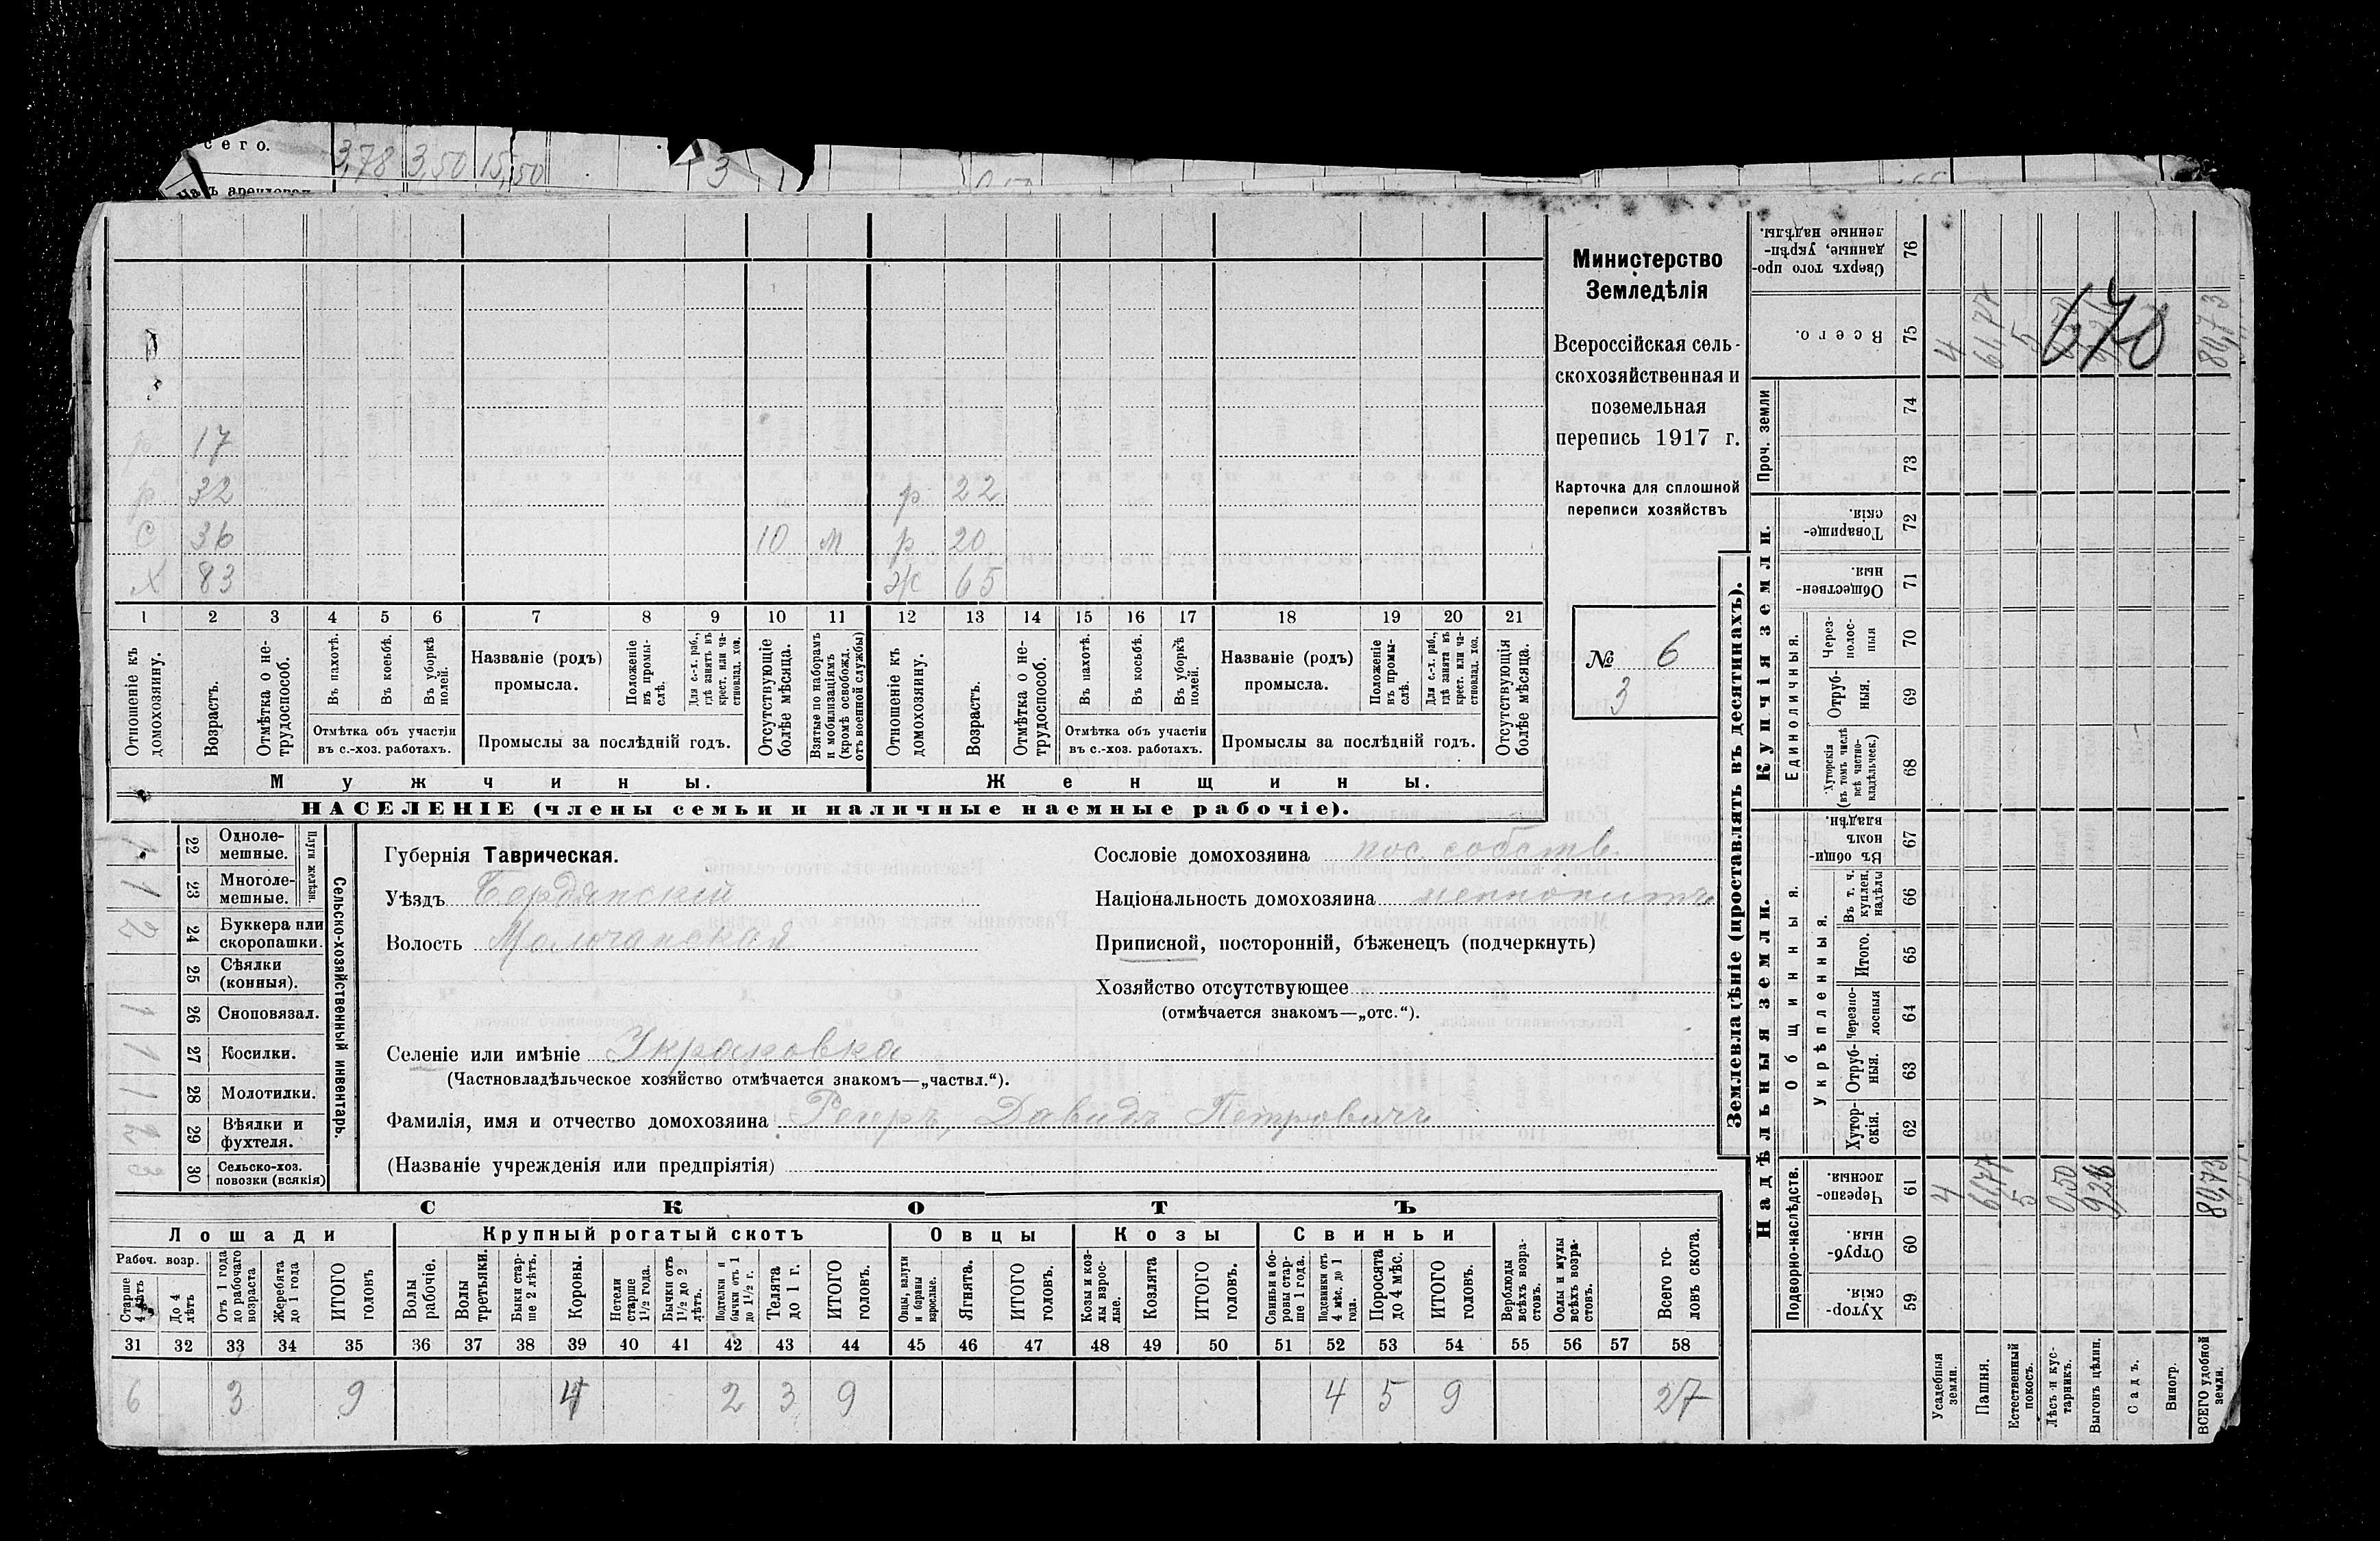 сего.
3,78 3,50 15,50 3
р 17
р 32 р 22
С 36 10 м р 20
Х 83 Ж 65
1 2 3 4 5 6 7 8 9 10 11 12 13 14 15 16 17 18 19 20 21
Отношеніе къ домохозяину.
Возрастъ.
Отмѣтка о нетрудоспособ.
Въ пахотѣ.
Въ косьбѣ.
Въ уборкѣ полей.
Отмѣтка объ участіи въ с.-хоз. работахъ.
Названіе (родъ) промысла.
Положеніе въ промыслѣ.
Для с.-х. раб., гдѣ занятъ въ крест. или частновлад. хоз.
Промыслы за послѣдній годъ.
Отсутствующіе болѣе мѣсяца.
Взятые по наборамъ и мобилизаціямъ (кромѣ освобожд. отъ военной службы)
Отношеніе къ домохозяину.
Возрастъ.
Отмѣтка о нетрудоспособ.
Въ пахотѣ.
Въ косьбѣ.
Въ уборкѣ полей.
Отмѣтка объ участіи въ с.-хоз. работахъ.
Названіе (родъ) промысла.
Положеніе въ промыслѣ.
Для с.-х. раб., гдѣ занята въ крест. или частновлад. хоз.
Промыслы за послѣдній годъ.
Отсутствующія болѣе мѣсяца.
Мужчины. Женщины.
НАСЕЛЕНІЕ (члены семьи и наличные наемные рабочіе).
Министерство
Земледѣлія
Всероссійская сель-
скохозяйственная и
поземельная
перепись 1917 г.
Карточка для сплошной
переписи хозяйствъ
№ 6
3
Сельско-хозяйственный инвентарь.
Плуги желѣзн.
1 22 Одноле-
мешные.
1 23 Многоле-
мешные.
2 24 Буккера или
скоропашки.
25 Сѣялки
(конныя).
1 26 Сноповязал.
1 27 Косилки.
1 28 Молотилки.
2 29 Вѣялки и
фухтеля.
3 30 Сельско-хоз.
повозки (всякія)
Губернія Таврическая.
Уѣздъ Бердянскій
Волость Молочанская
Сословіе домохозяина пос. собств.
Національность домохозяина меннонитъ
Приписной, посторонній, бѣженецъ (подчеркнуть)
Хозяйство отсутствующее
(отмѣчается знакомъ—„отс.“).
Селеніе или имѣніе
(Частновладѣльческое хозяйство отмѣчается знакомъ—„частвл.“).
Фамилія, имя и отчество домохозяина Регеръ, Давидъ Петровичъ
(Названіе учрежденія или предпріятія)
СКОТЪ
Лошади Крупный рогатый скотъ Овцы Козы Свиньи
Рабоч. возр.
Старше 4 лѣтъ
До 4 лѣтъ
Отъ 1 года до рабочаго возраста
Жеребята до 1 года
ИТОГО головъ
Волы рабочіе.
Волы третьяки.
Быки старше 2 лѣтъ.
Коровы.
Нетели старше 1½ года.
Бычки отъ 1½ до 2 лѣтъ.
Подтелки и бычки отъ 1 до 1½ г.
Телята до 1 г.
ИТОГО головъ.
Овцы, валухи и бараны взрослые.
Ягнята.
ИТОГО головъ.
Козы и козлы взрослые.
Козлята
ИТОГО головъ.
Свиньи и боровы старше 1 года.
Подсвинки отъ 4 мѣс. до 1 года.
Поросята до 4 мѣс.
ИТОГО головъ.
Верблюды всѣхъ возрастовъ.
Ослы и мулы всѣхъ возрастовъ.
Всего головъ скота.
31 32 33 34 35 36 37 38 39 40 41 42 43 44 45 46 47 48 49 50 51 52 53 54 55 56 57 58
6 3 9 4 2 3 9 4 5 9 27
Землевладѣніе (проставлять въ десятинахъ).
Надѣльныя земли.
Купчія земли.
Проч. земли
Подворно-наслѣдств.
Общинныя.
Укрѣпленныя.
Единоличныя.
Сверхъ того проданные, укрѣпленные надѣлы. 76
Всего. 75 4 61,77 5 80,73
670
74
73
Товарищескія. 72
Общественныя. 71
Черезполосныя 70
Отрубныя. 69
Хуторскія (въ томъ числѣ всѣ частновладѣльческ.) 68
Въ общинномъ владѣн. 67
Въ т. ч. куплен. надѣлы 66
Итого. 65
Черезполосныя 64
Отрубныя. 63
Хуторскія. 62
Черезполосныя. 61 4 61,77 5 0,50 9,26 80,73
Отрубныя. 60
Хуторскія. 59
Усадебныя земли.
Пашня.
Естественный покосъ.
Лѣсъ и кустарникъ.
Выгонъ цѣлин.
Садъ.
Виногр.
ВСЕГО удобной земли.